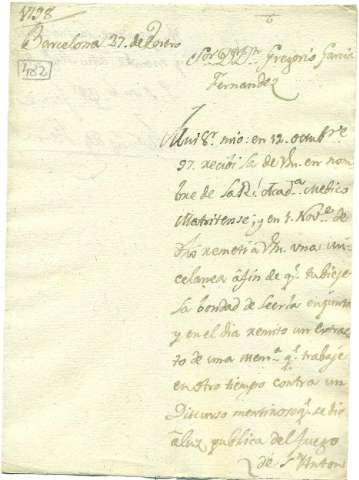 1798
Barcelona 27. de Enero
182
Sor Dn Gregorio Garcia
Fernandez
Mui Sr. mio: en 12. octubre
97. recibi la de Vm. en nom
bre de la Rl. Acada. Medico
Matritense; y en 1. Nove. de
remeti a Vm. una mis
celanea afin de qe. tubiese
la bondad de leerla en junta
y en el dia remito un Extrac
to de una mema. qe. trabaje
en otro tiempo contra un
Discurso qe. se dio
a luz publica del fuego
de Sn. Anton